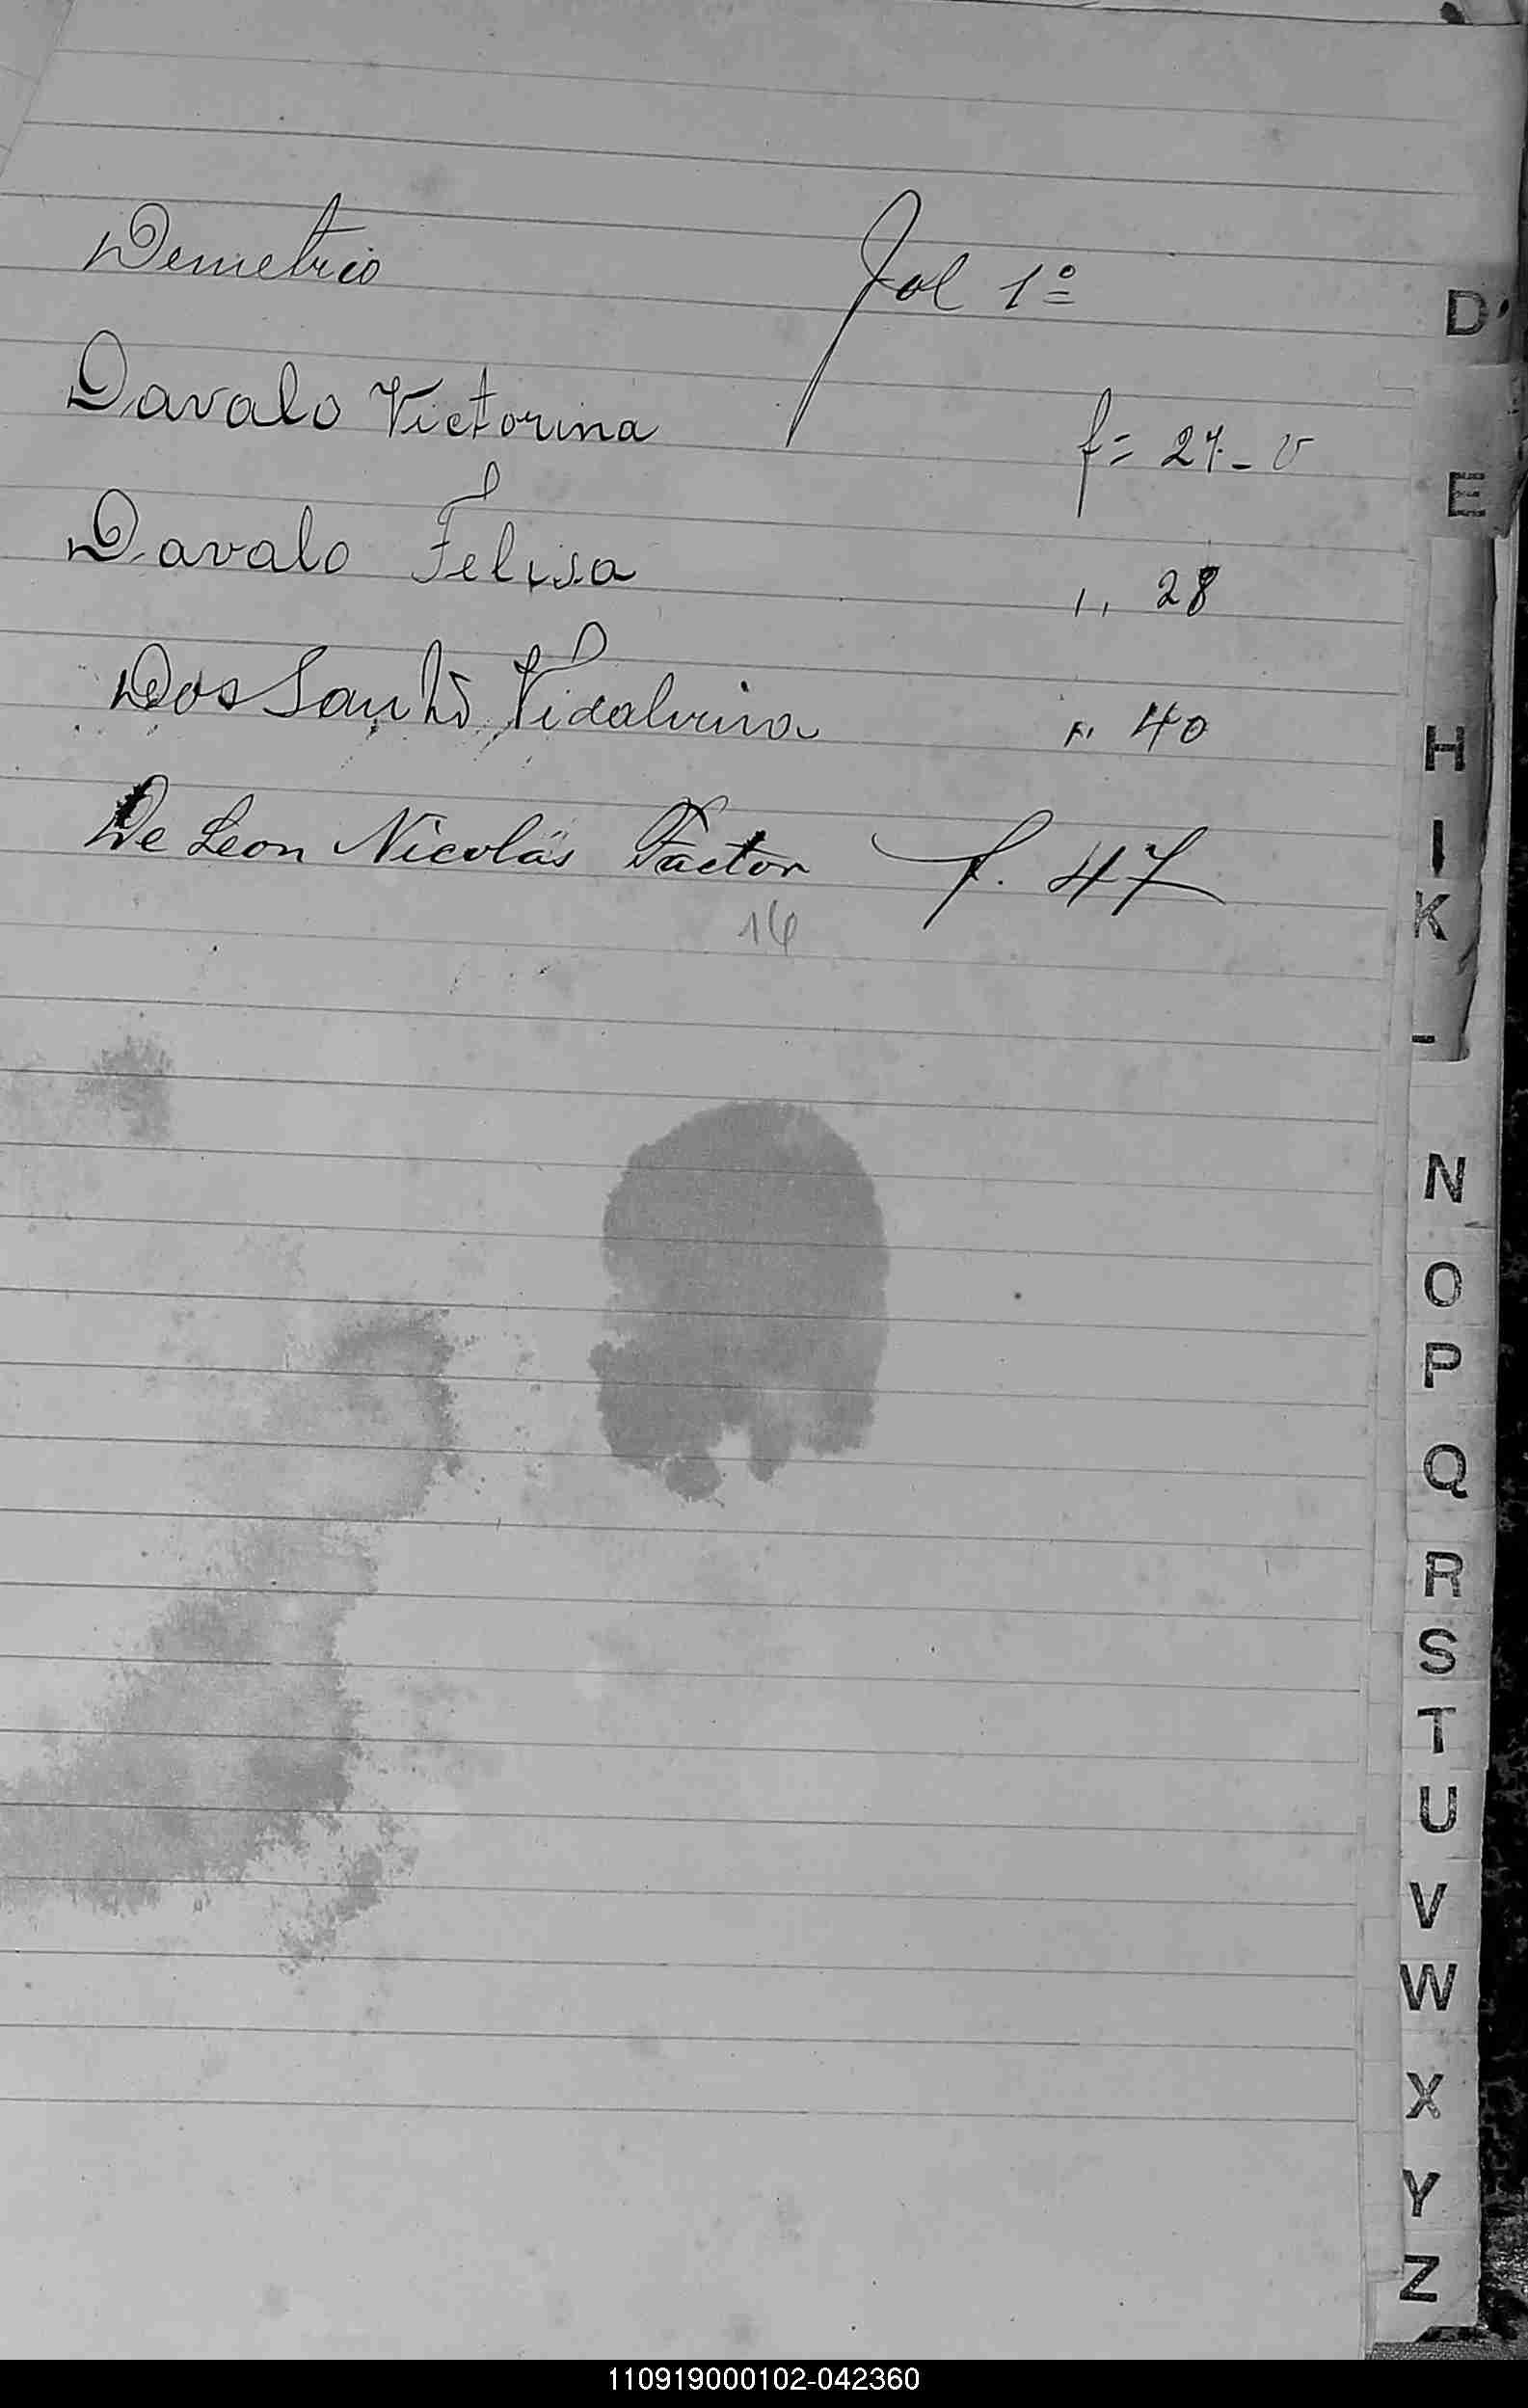 Demetrio Fol 1º
Davalo Victorina f= 27- v
Davalo Felisa ,, 28
Dos Santos Vidalvina ,, 40
De Leon Nicolás Factor f. 47
16
D
E
H
I
K
N
O
P
Q
R
S
T
U
V
W
X
Y
Z
110919000102-042360